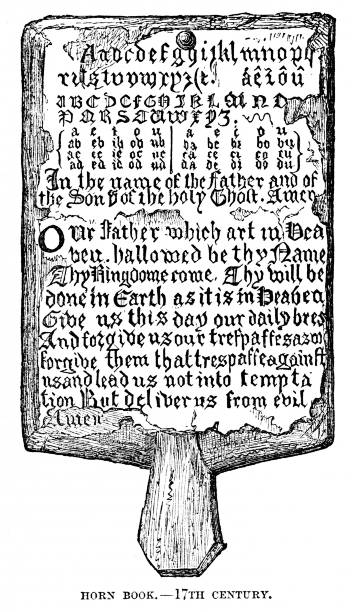 Aabcdefghijklmnopq
rſstuvwxyz&c. áéíóú
ABCDEFGHIKLMN
PQRSTUWXYZ.
a e i o u | a e i o u
ab eb ib ob ub | ba be bi bo bu
ac ec ic oc uc | ca ce ci co cu
ad ed id od ud | da de di do du
In the name of the Father and of
the Son & of the holy Ghost. Amen
Our Father which art in Hea
ven. hallowed be thy Name
Thy Kingdome come. Thy will be
done in Earth as it is in Heaven
Give us this day our daily brea
And forgive us our treſpaſſes as w
forgive them that treſpaſſe againſt
us and lead us not into tempta
tion But deliver us from evil
Amen
HORN BOOK.—17TH CENTURY.